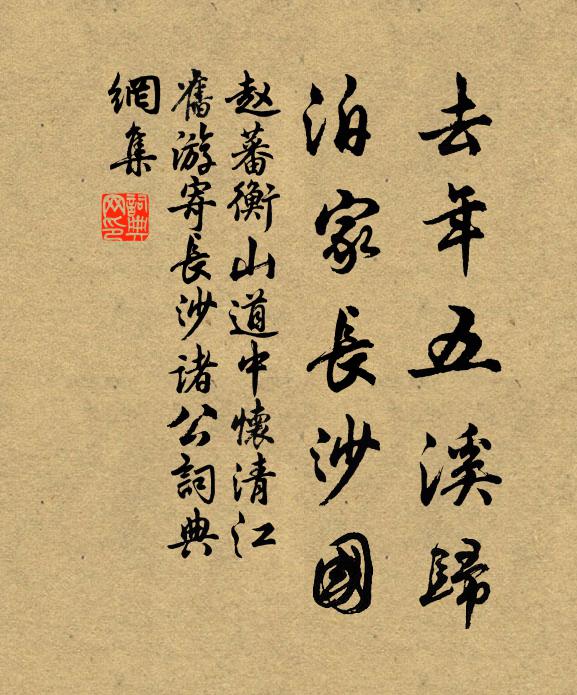 去年五溪歸
泊家長沙國
赵蕃衡山道中懷清江
舊游寄長沙諸公詞典
網集
詞典网印